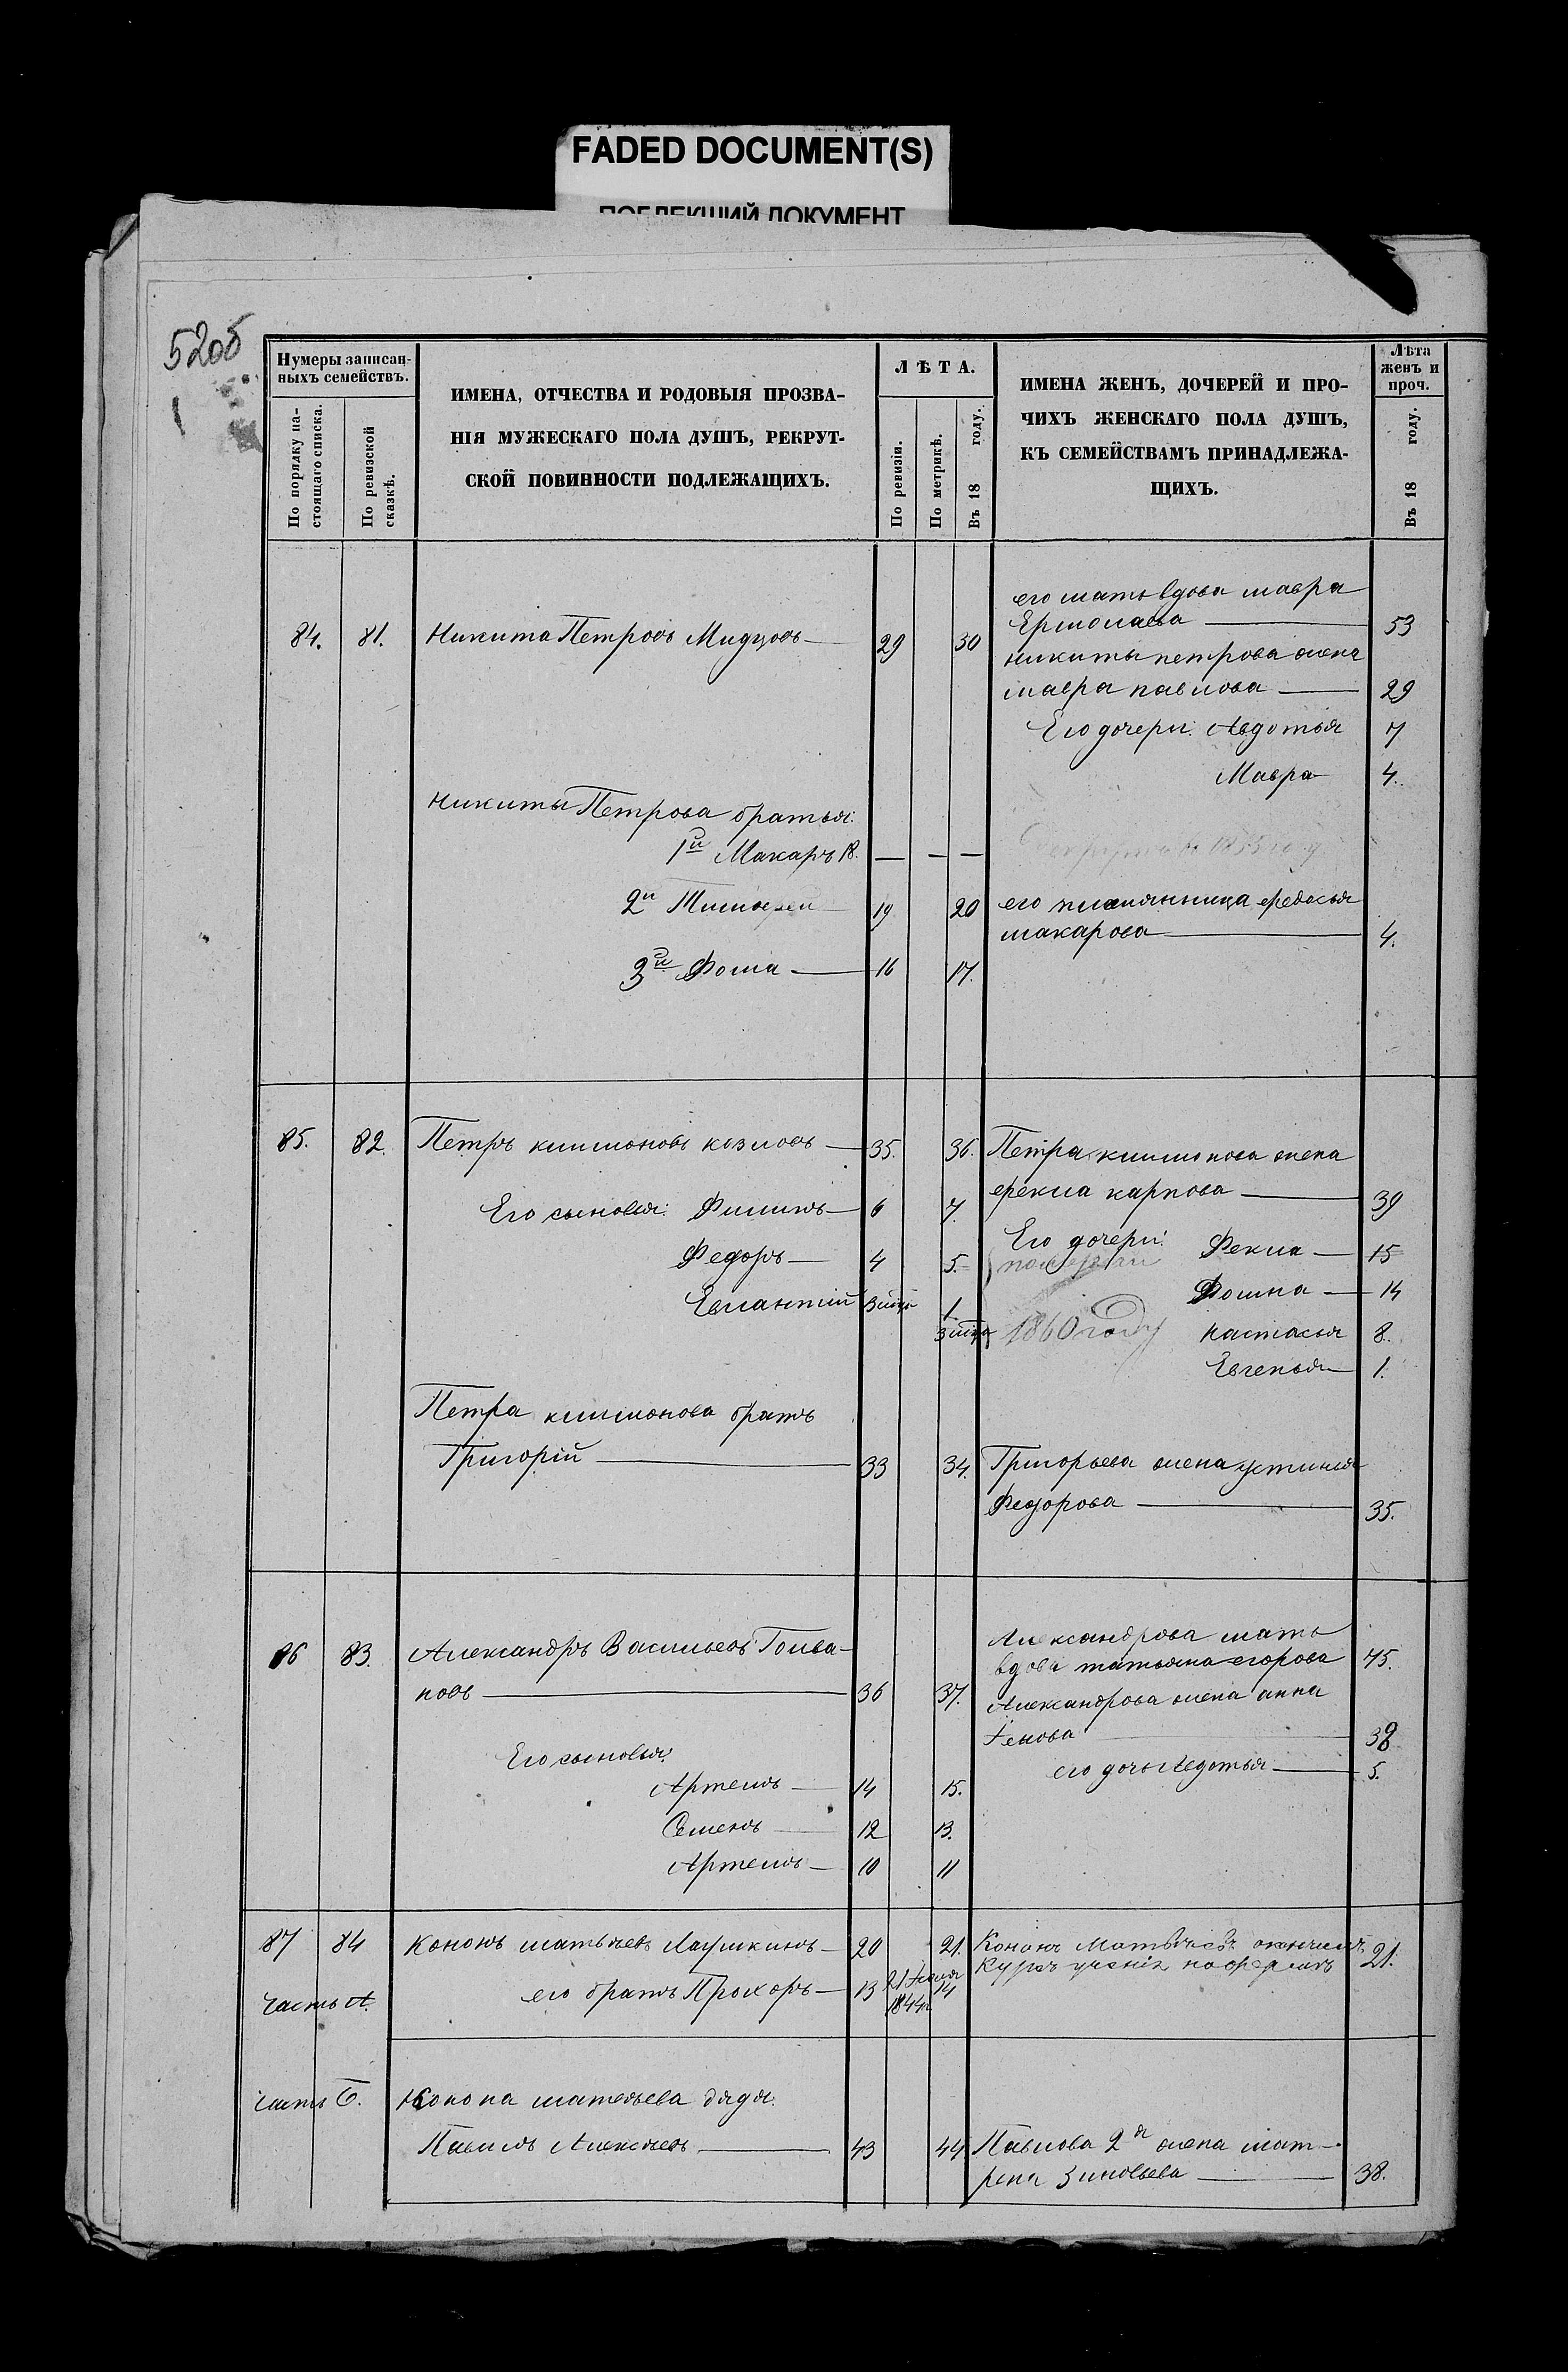 FADED DOCUMENT(S)
ПОБЛЕКШИЙ ДОКУМЕНТ
520б
Нумеры записан-
ныхъ семействъ.
По порядку на-
стоящаго списка.
По ревизской
сказкѣ.
ИМЕНА, ОТЧЕСТВА И РОДОВЫЯ ПРОЗВА-
НІЯ МУЖЕСКАГО ПОЛА ДУШЪ, РЕКРУТ-
СКОЙ ПОВИННОСТИ ПОДЛЕЖАЩИХЪ.
ЛѢТА.
По ревизіи.
По метрикѣ.
Въ 18 году.
ИМЕНА ЖЕНЪ, ДОЧЕРЕЙ И ПРО-
ЧИХЪ ЖЕНСКАГО ПОЛА ДУШЪ,
КЪ СЕМЕЙСТВАМЪ ПРИНАДЛЕЖА-
ЩИХЪ.
Лѣта
женъ и
проч.
Въ 18 году.
84. 81. Никита Петровъ 29 30
его мать вдова мавра
Ермолаева 53
никиты петрова жена
мавра павлова 29
Его дочери: Авдотья 7
Мавра 4.
Никиты Петрова братья:
1й Макаръ 18. — — —
1855 году
2й Тимофей 19 20
его племянница федосья
макарова 4.
3й Фома 16 17.
85. 82. Петръ климоновъ козловъ 35. 36.
Петра климонова жена
фекла карпова 39
Его сыновья: Филипъ 6 7.
Федоръ 4 5.
Евлантій 1
Его дочери: Фекла 15
Фомна 14
1860 году настасья 8.
Евгенья 1.
Петра климонова братъ
Григорій 33 34.
Григорьева жена устинья
Федорова 35.
86 83. Александръ Васильевъ Голва-
новъ 36 37.
Александрова мать
вдова татьяна егорова 75.
Александрова жена анна
38
его дочь Авдотья 5.
Его сыновья:
Артемъ 14 15.
Семенъ 12 13.
Артемъ 10 11
87 84 Кононъ матвѣевъ Лаушкинъ 20 21.
Кононъ Матвѣевъ
Курсъ 21.
часть А. его братъ Прохоръ 13 14
21
1844
часть Б. Конона матвѣева дядя.
Павелъ Алексѣевъ 43 44
Павлова 2я жена мат-
рена Зиновьева 38.